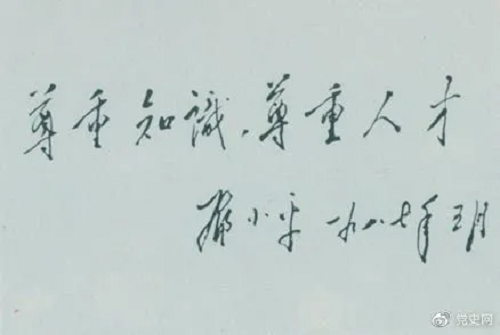 尊重知識，尊重人才
邓小平 一九八七年五月
党史网